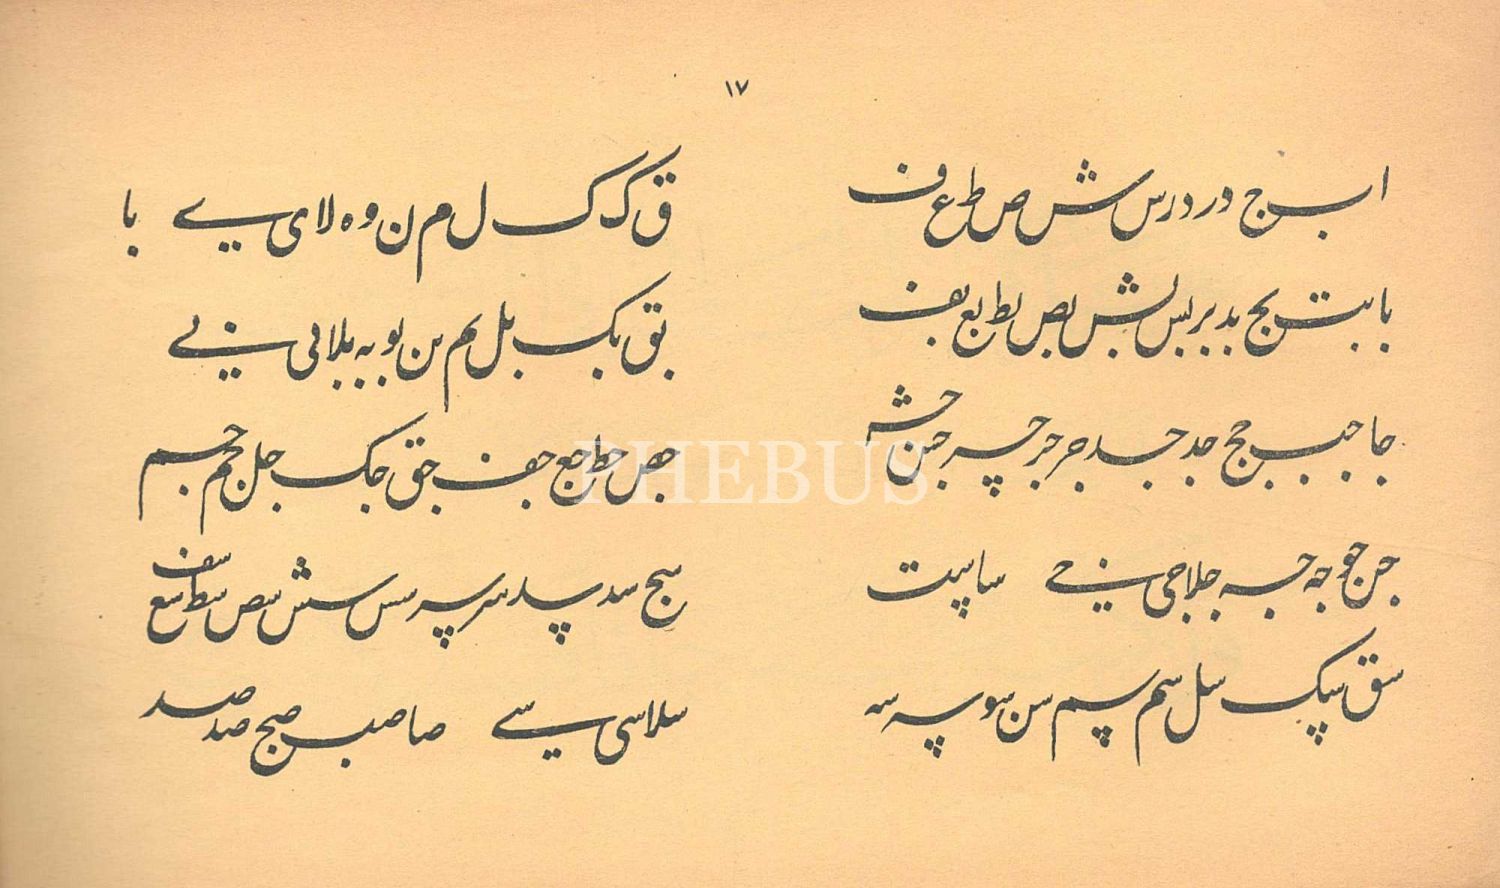 ١٧
ا ب ج د ر د ر س ش ص ط ع ف
ق ک ک ل م ن و ه لا ی ے با
با بت بج بد بر بس بش بص بط بع بف
بق بک بل بم بن بو به بلا بی
جا جب جج جد جد جر جر چر جس جش
جص جط جع جف جق جک جل جم جم
جن جو جه جه جلا جی سا سپت
سج سد سد سر سر سس سش سص سط سع سف
سق سپک سل سم سپم سن سو سه سه
سلا سی سے صا صب صج صد صد
PHEBUS